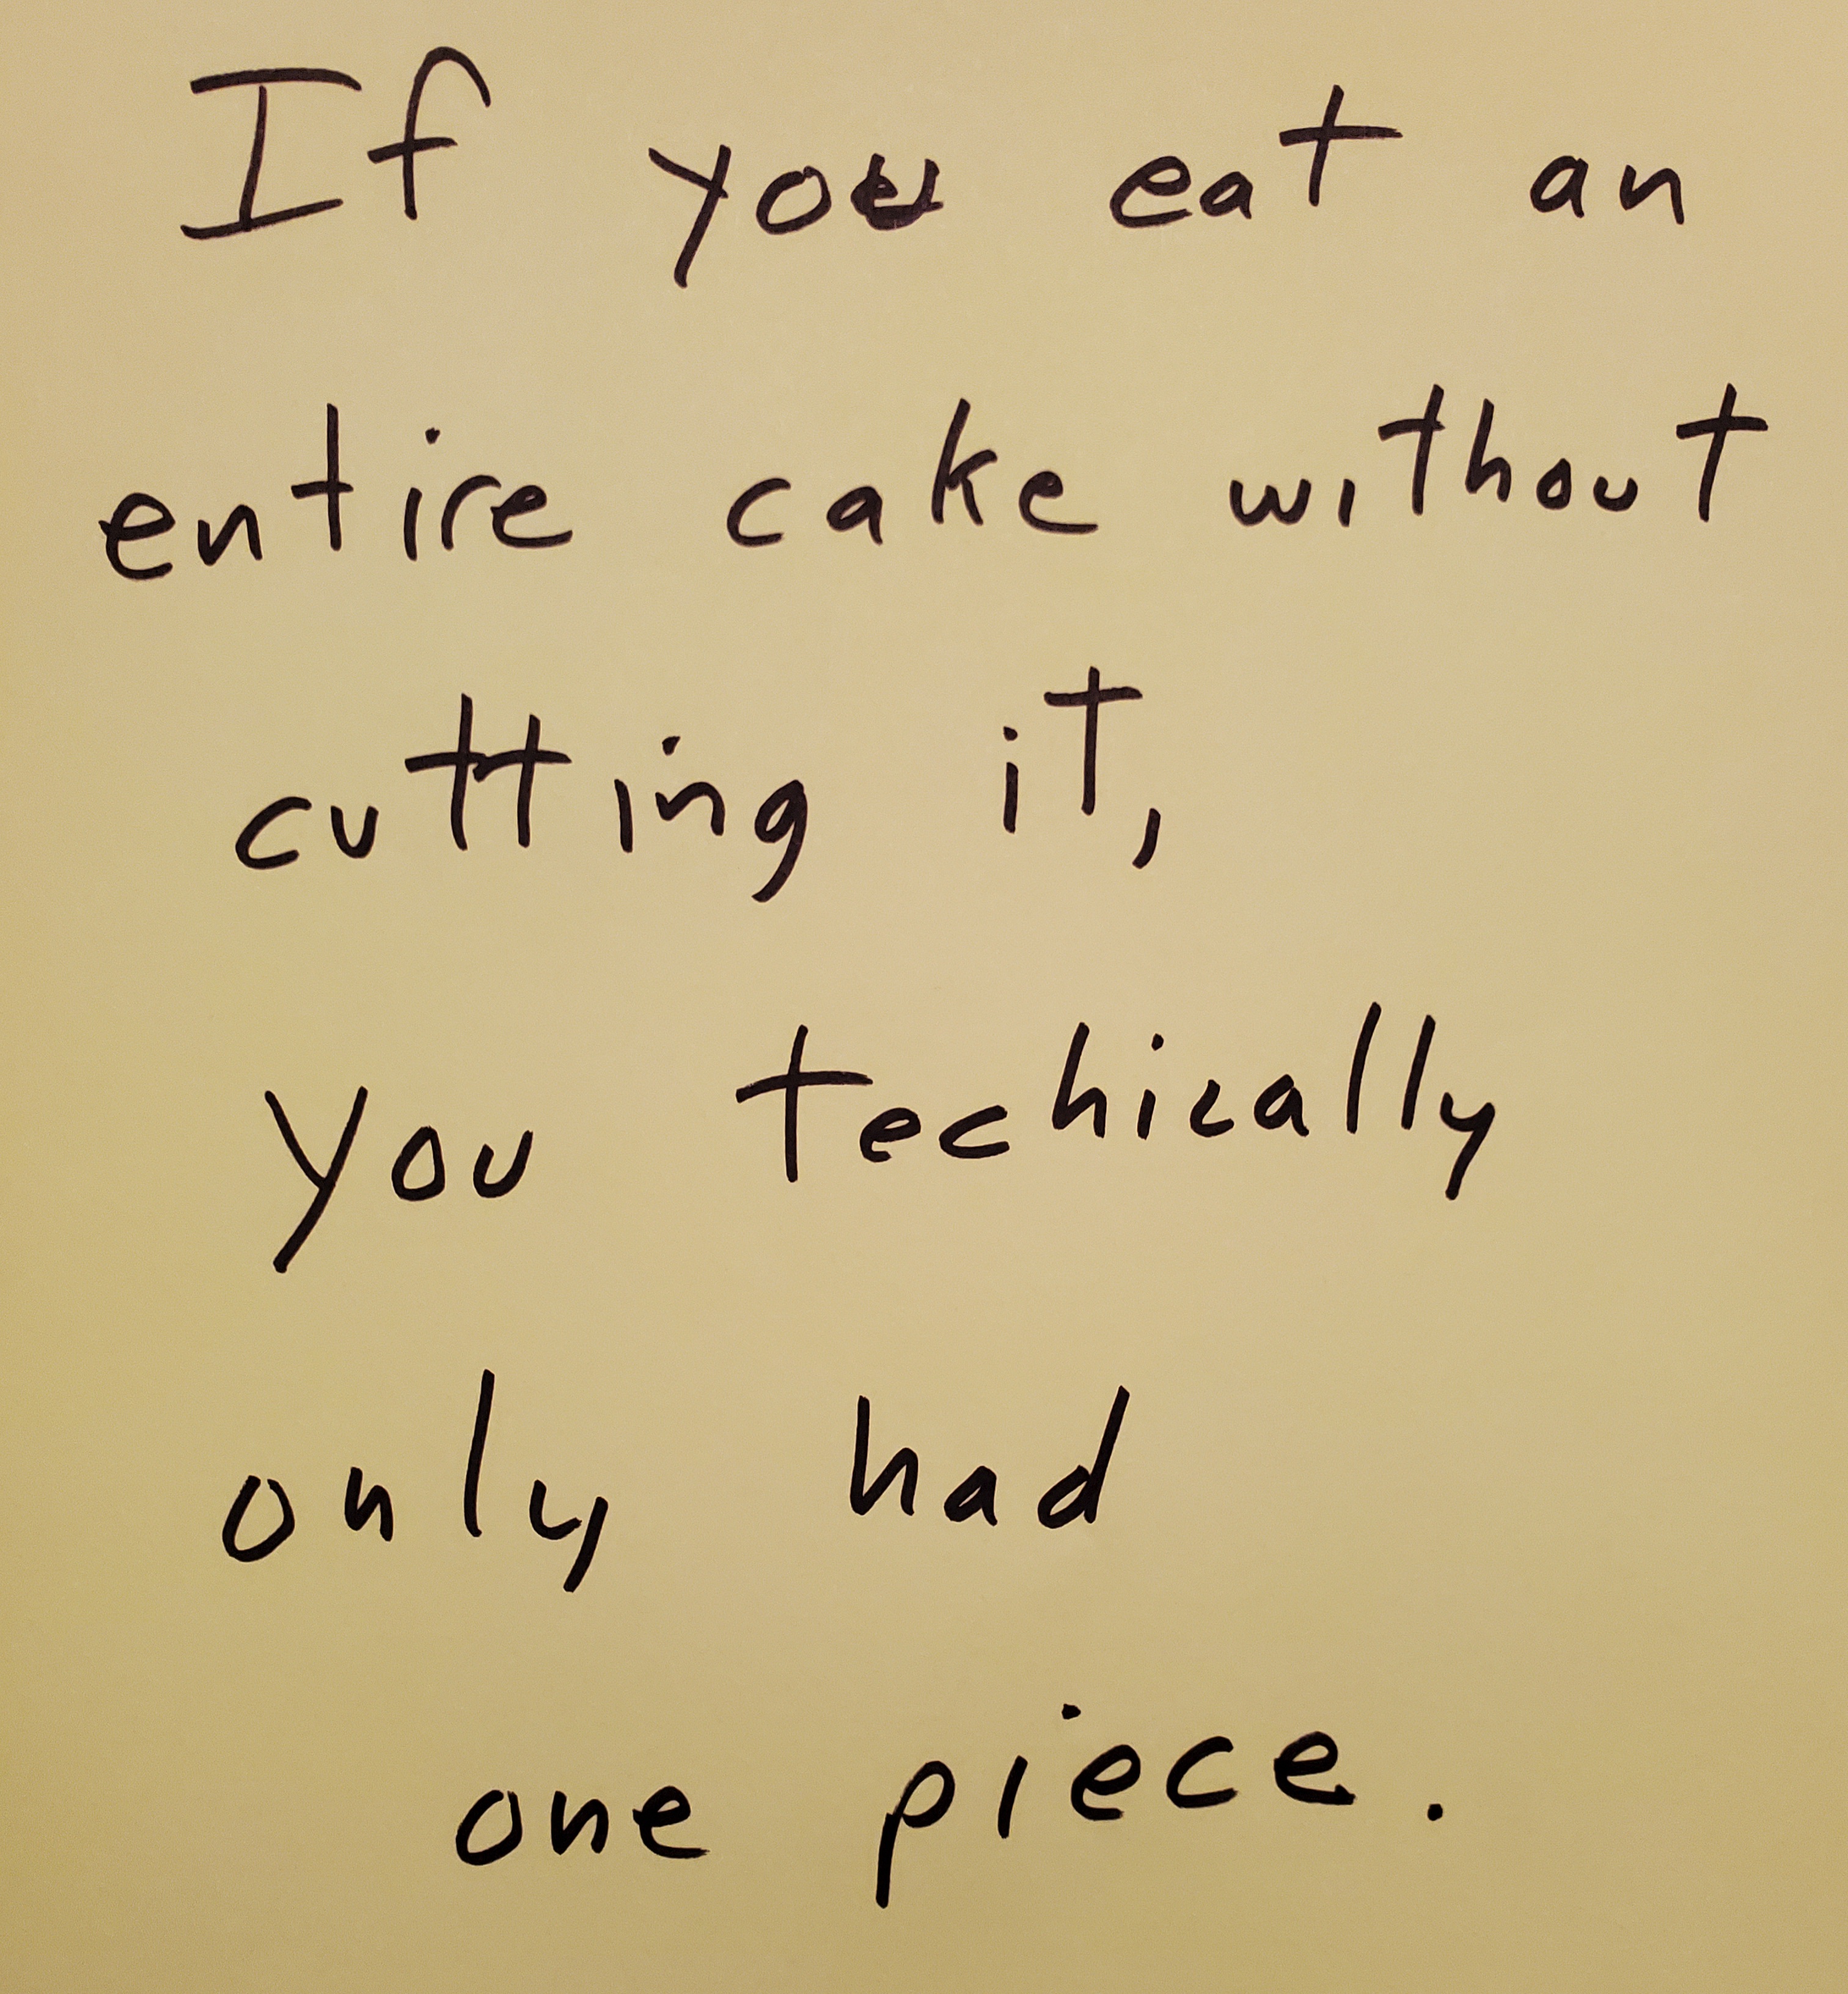 If you eat an
entire cake without
cutting it,
you techically
only had
one piece.